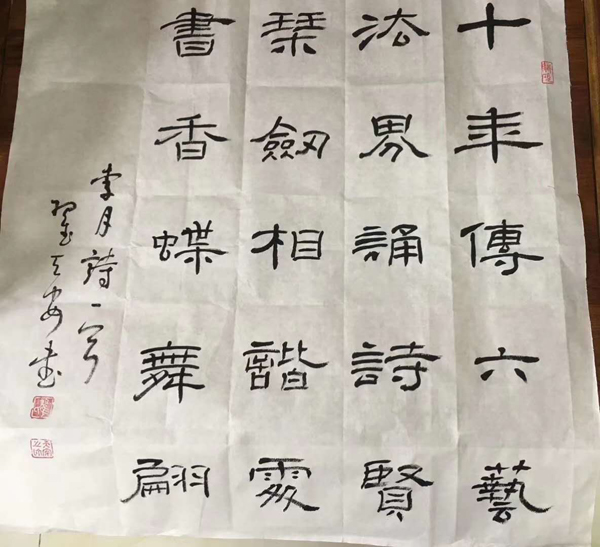 十年傳六藝
法界誦詩賢
琹劒相諧處
書香蝶舞翩
李月詩一首
書